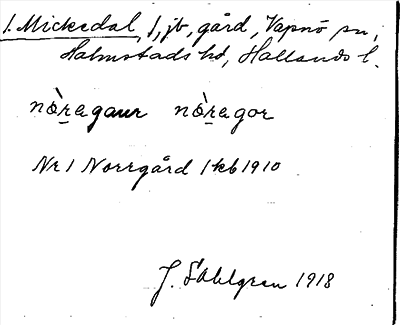 1. Mickedal, 1, jb, gård, Vapnö sn,
Halmstads hd, Hallands l.
nòragaur nòragor
Nr 1 Norrgård 1 kb 1910
J. Sahlgren 1918